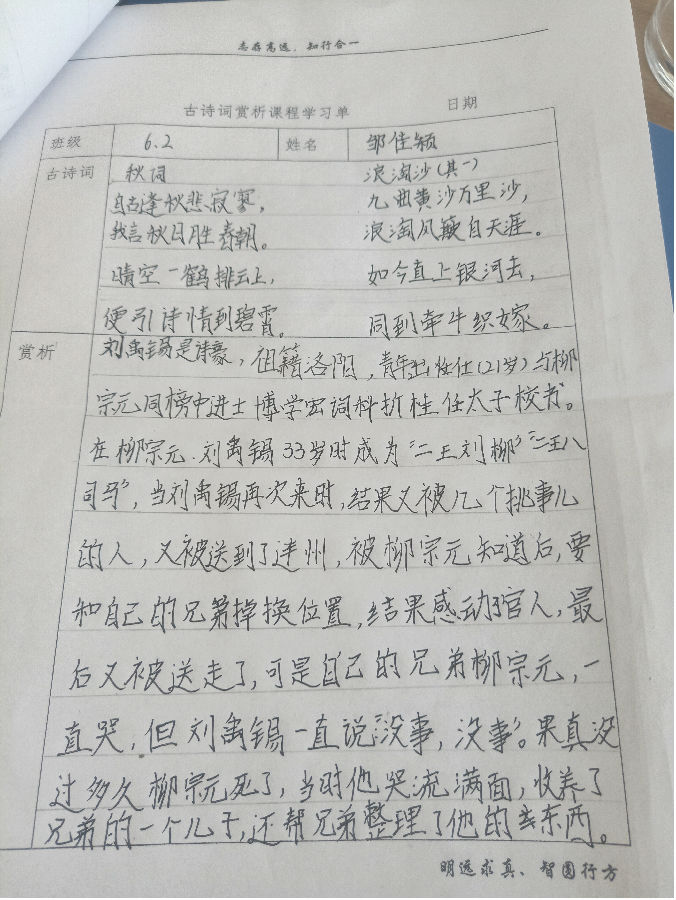 志存高远，知行合一
古诗词赏析课程学习单 日期
班级 6.2 姓名 邹佳颖
古诗词 秋词 浪淘沙(其一)
自古逢秋悲寂寥， 九曲黄沙万里沙，
我言秋日胜春朝。 浪淘风簸自天涯。
晴空一鹤排云上， 如今直上银河去，
便引诗情到碧霄。 同到牵牛织嫁。
赏析 刘禹锡是诗豪，祖籍洛阳，青年出仕(21岁)与柳
宗元同榜中进士博学宏词科折桂任太子校书。
在柳宗元.刘禹锡33岁时成为“二王刘柳”“二王八
司马”，当刘禹锡再次来时，结果又被几个挑事儿
的人，又被送到了连州，被柳宗元知道后，要
和自己的兄弟掉换位置，结果感动了官人，最
后又被送走了，可是自己的兄弟柳宗元，一
直哭，但刘禹锡一直说“没事，没事”。果真没
过多久柳宗元死了，当时他哭流满面，收养了
兄弟的一个儿子，还帮兄弟整理了他的东西。
明远求真、智圆行方